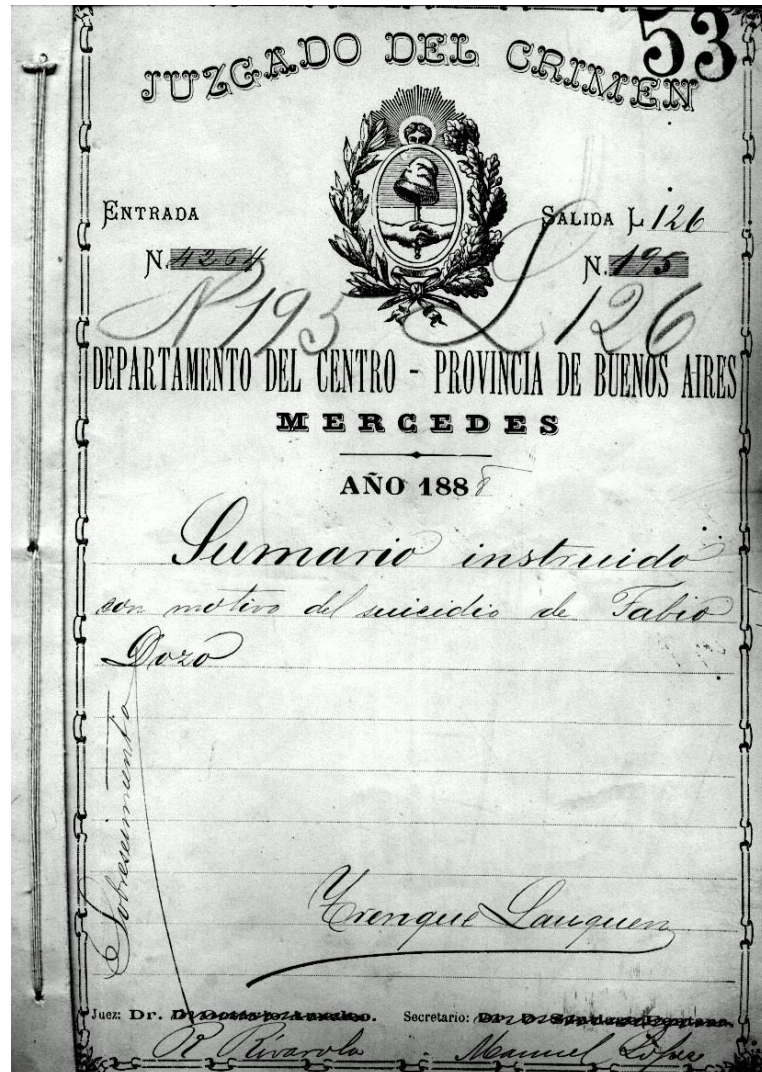 53
JUZGADO DEL CRIMEN
ENTRADA
SALIDA L 126
N. 4264
N. 195
N 195 L 126
DEPARTAMENTO DEL CENTRO - PROVINCIA DE BUENOS AIRES
MERCEDES
AÑO 1888
Sumario instruido
con motivo del suicidio de Fabio
Dozo
Sobreseimiento
Trenque Lauquen
Juez: Dr. D. Secretario:
R Rivarola Manuel López